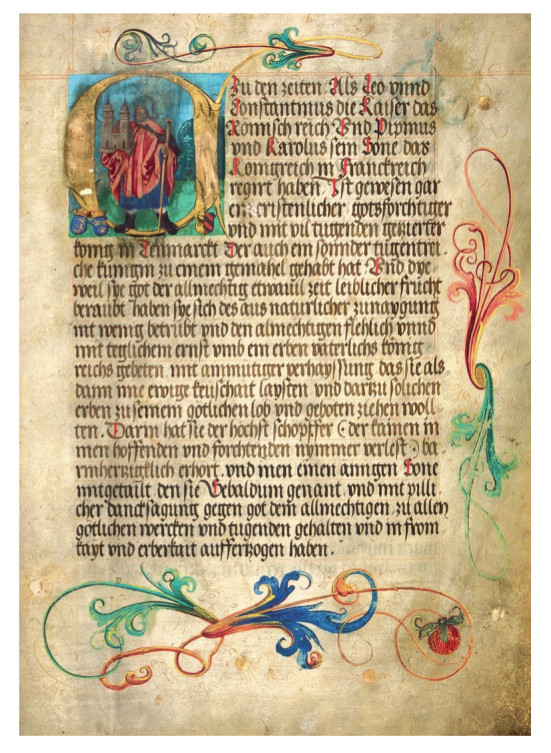 Zu den zeiten Als Leo vnnd
Constantinus die Kaiser das
Romisch reich Vnd Pipinus
vnd Karolus sein Sone das
Konigreich in Franckreich
regirt haben Ist gewesen gar
ein cristenlicher gotsforchtiger
vnd mit vil tugenden geziertter
konig in Tenmarckt Der auch ein sonnder tugentrei
che kunigin zu einem gemahel gehabt hat Vnd dye
weil sye got der allmechtig etwauil zeit leiblicher frucht
beraubt haben sye sich des aus naturlicher zunaygung
nit wenig betrubt vnd den almechtigen flehlich vnnd
mit teglichem ernst vmb ein erben vaterlichs konig
reichs gebeten mit anmutiger verhayssung das sie als
dann ine ewige keuschait laysten vnd dartzu solichen
erben zu seinem gotlichen lob vnd geboten ziehen woll
ten. Darin hat sie der hochst schopffer (: der kainen in
inen hoffenden vnd forchtenden nymmer verlest :) ba
rmhertzigklich erhort vnd inen einen ainigen Sone
mitgetailt den sie Sebaldum genant vnd mit pilli
cher dancksagung gegen got dem allmechtigen zu allen
gotlichen wercken vnd tugenden gehalten vnd in from
kayt vnd erberkait aufferzogen haben.